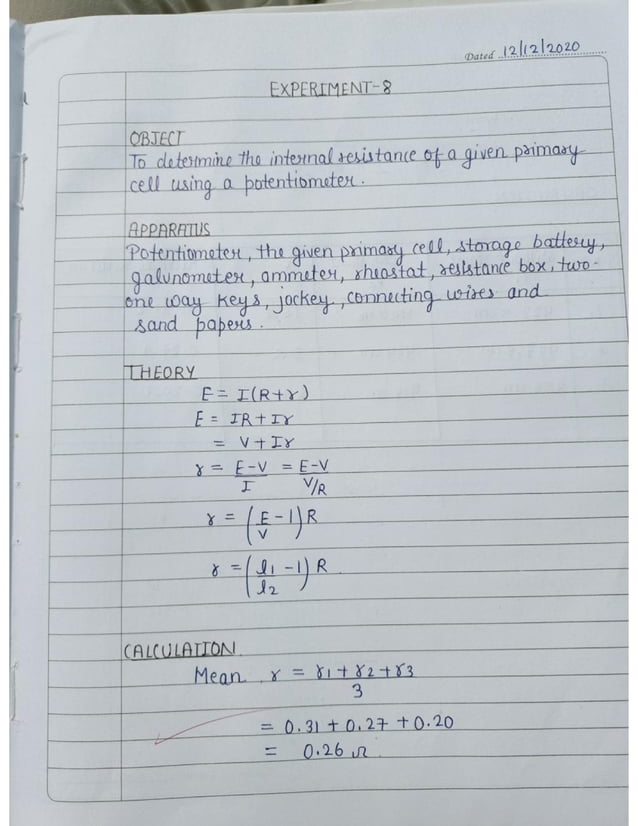 Dated 12/12/2020
EXPERIMENT-8
OBJECT
To determine the internal resistance of a given primary
cell using a potentiometer.
APPARATUS
Potentiometer, the given primary cell, storage battery,
galvnometer, ammeter, rheostat, resistance box, two-
one way keys, jockey, connecting wires and
sand papers.
THEORY
E = I(R+r)
E = IR + Ir
= V + Ir
r = E-V / I = E-V / V/R
r = (E/V - 1) R
r = (l1/l2 - 1) R
CALCULATION
Mean r = r1 + r2 + r3 / 3
= 0.31 + 0.27 + 0.20
= 0.26 Ω